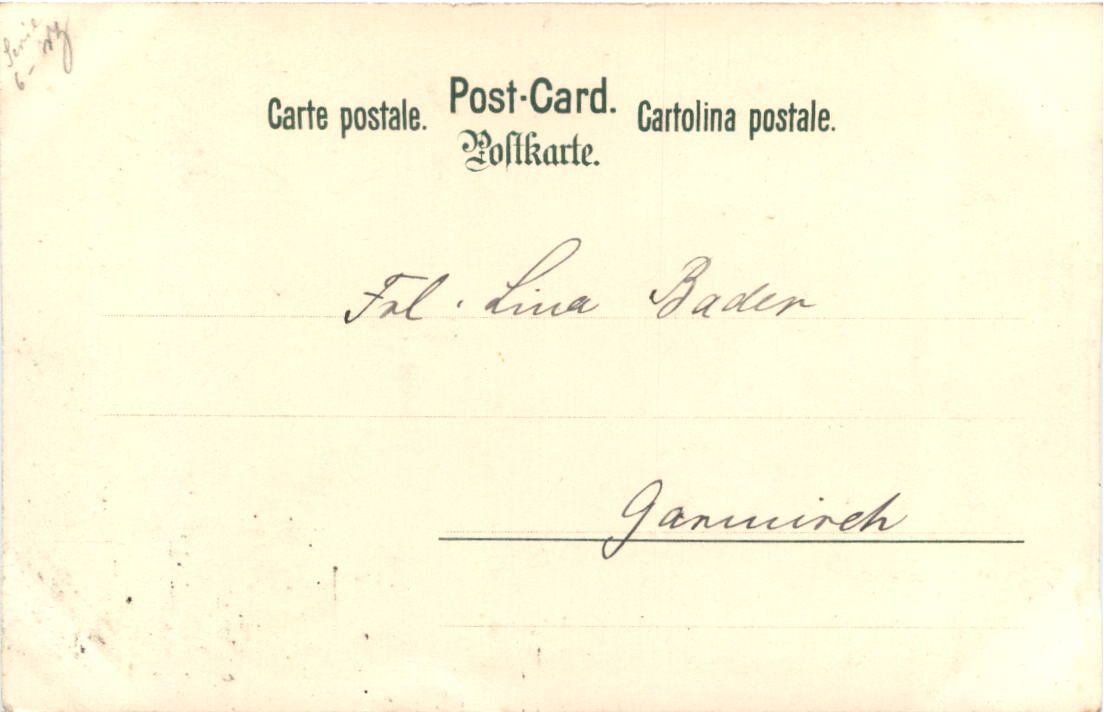 Serie
6-
Carte postale. Post-Card. Cartolina postale.
Postkarte.
Frl. Lina Bader
Garmisch